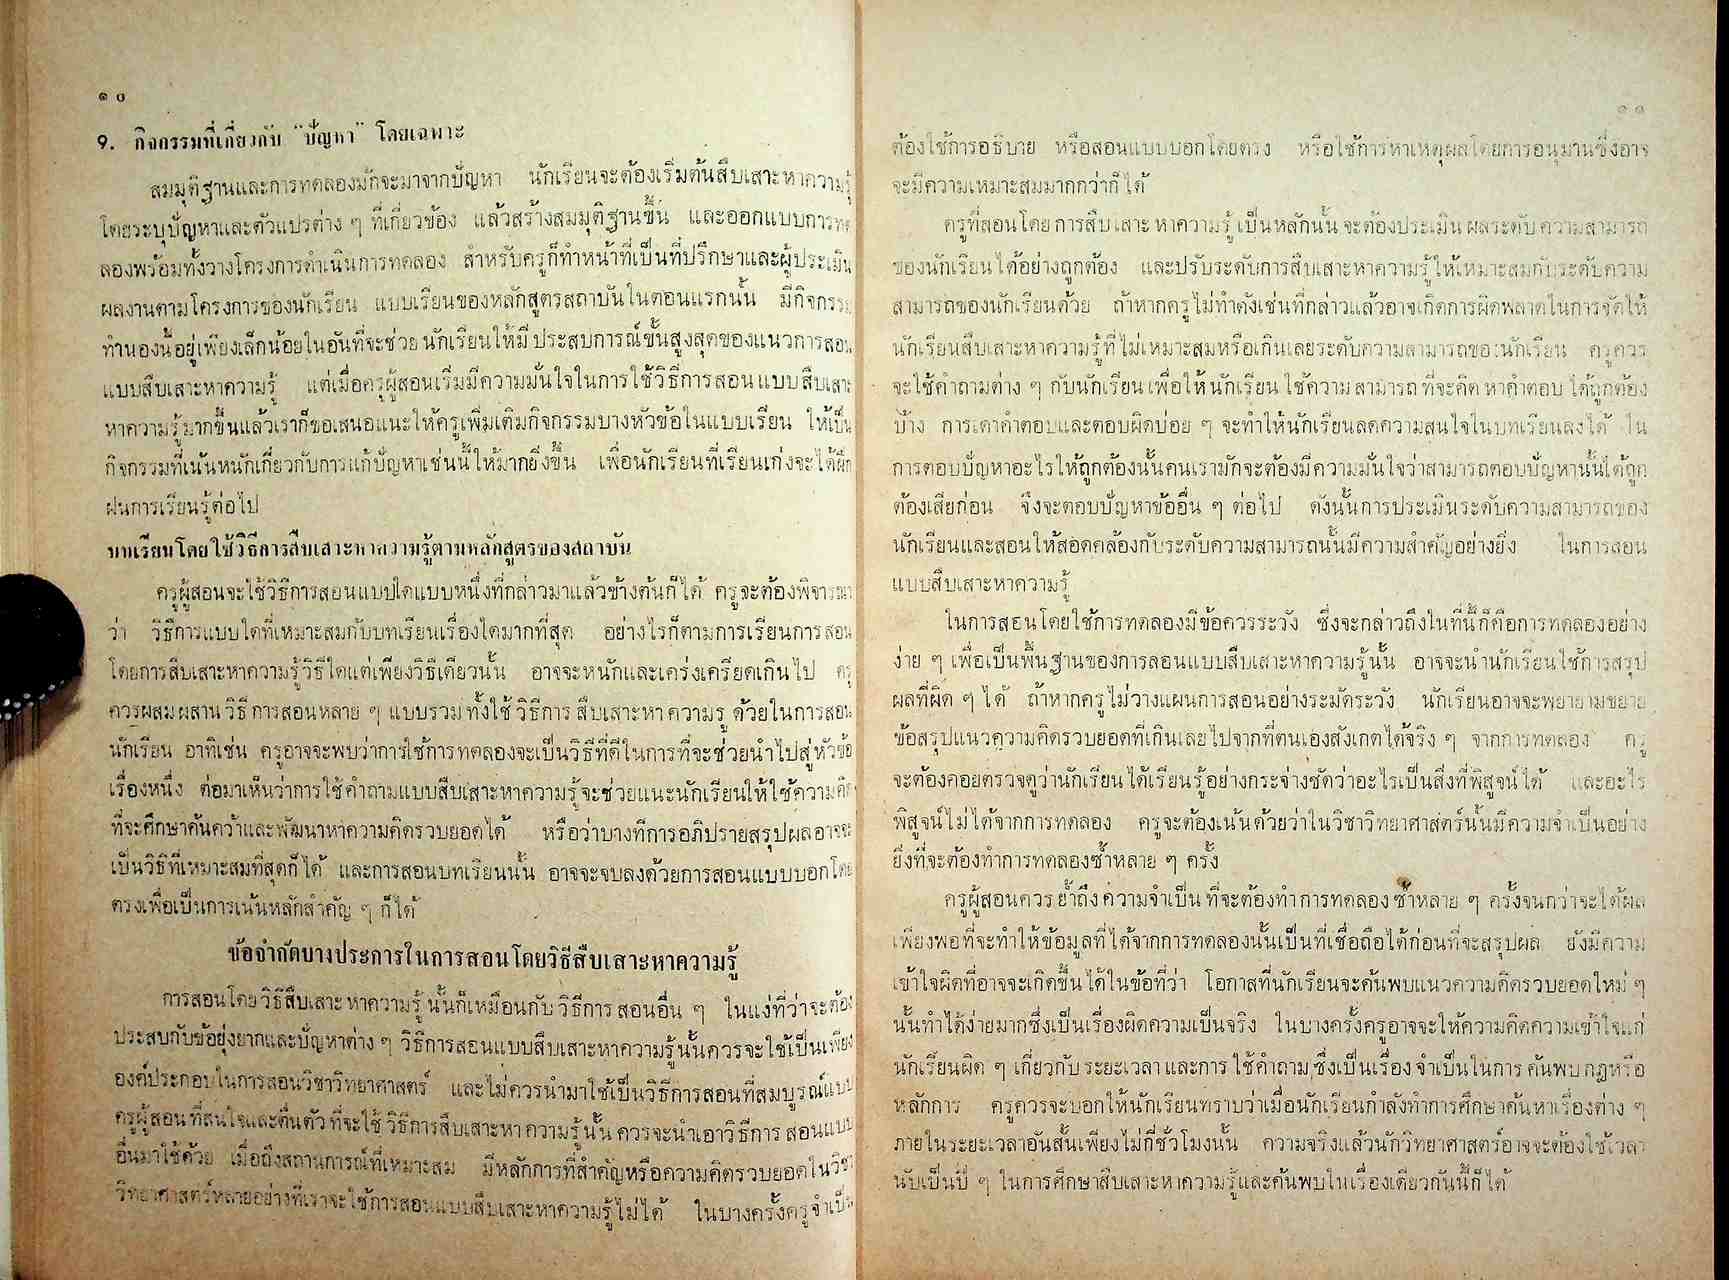 ๑๐
9. กิจกรรมที่เกี่ยวกับ "ปัญหา" โดยเฉพาะ
สมมุติฐานและการทดลองมักจะมาจากปัญหา นักเรียนจะต้องเริ่มต้นสืบเสาะหาความรู้
โดยระบุปัญหาและตัวแปรต่าง ๆ ที่เกี่ยวข้อง แล้วสร้างสมมุติฐานขึ้น และออกแบบการทด
ลองพร้อมทั้งวางโครงการดำเนินการทดลอง สำหรับครูก็ทำหน้าที่เป็นที่ปรึกษาและผู้ประเมิน
ผลงานตามโครงการของนักเรียน แบบเรียนของหลักสูตรสถาบันในตอนแรกนั้น มีกิจกรรม
ทำนองนี้อยู่เพียงเล็กน้อยในอันที่จะช่วยนักเรียนให้มีประสบการณ์ขั้นสูงสุดของแนวการสอน
แบบสืบเสาะหาความรู้ แต่เมื่อครูผู้สอนเริ่มมีความมั่นใจในการใช้วิธีการสอนแบบสืบเสาะ
หาความรู้มากขึ้นแล้วเราก็ขอเสนอแนะให้ครูเพิ่มเติมกิจกรรมบางหัวข้อในแบบเรียน ให้เป็น
กิจกรรมที่เน้นหนักเกี่ยวกับการแก้ปัญหาเช่นนี้ให้มากยิ่งขึ้น เพื่อนักเรียนที่เรียนเก่งจะได้ฝึก
ฝนการเรียนรู้ต่อไป
บทเรียนโดยใช้วิธีการสืบเสาะหาความรู้ตามหลักสูตรของสถาบัน
ครูผู้สอนจะใช้วิธีการสอนแบบใดแบบหนึ่งที่กล่าวมาแล้วข้างต้นก็ได้ ครูจะต้องพิจารณา
ว่า วิธีการแบบใดที่เหมาะสมกับบทเรียนเรื่องใดมากที่สุด อย่างไรก็ตามการเรียนการสอน
โดยการสืบเสาะหาความรู้วิธีใดแต่เพียงวิธีเดียวนั้น อาจจะหนักและเคร่งเครียดเกินไป ครู
ควรผสมผสานวิธีการสอนหลาย ๆ แบบรวมทั้งใช้วิธีการสืบเสาะหาความรู้ ด้วยในการสอน
นักเรียน อาทิเช่น ครูอาจจะพบว่าการใช้การทดลองจะเป็นวิธีที่ดีในการที่จะช่วยนำไปสู่หัวข้อ
เรื่องหนึ่ง ต่อมาเห็นว่าการใช้คำถามแบบสืบเสาะหาความรู้จะช่วยแนะนักเรียนให้ใช้ความคิด
ที่จะศึกษาค้นคว้าและพัฒนาหาความคิดรวบยอดได้ หรือว่าบางทีการอภิปรายสรุปผลอาจจะ
เป็นวิธีที่เหมาะสมที่สุดก็ได้ และการสอนบทเรียนนั้น อาจจะจบลงด้วยการสอนแบบบอกโดย
ตรงเพื่อเป็นการเน้นหลักสำคัญ ๆ ก็ได้
ข้อจำกัดบางประการในการสอนโดยวิธีสืบเสาะหาความรู้
การสอนโดยวิธีสืบเสาะหาความรู้นั้นก็เหมือนกับวิธีการสอนอื่น ๆ ในแง่ที่ว่าจะต้อง
ประสบกับข้อยุ่งยากและปัญหาต่าง ๆ วิธีการสอนแบบสืบเสาะหาความรู้นั้นควรจะใช้เป็นเพียง
องค์ประกอบในการสอนวิชาวิทยาศาสตร์ และไม่ควรนำมาใช้เป็นวิธีการสอนที่สมบูรณ์แบบ
ครูผู้สอนที่สนใจและตื่นตัวที่จะใช้วิธีการสืบเสาะหาความรู้นั้น ควรจะนำเอาวิธีการสอนแบบ
อื่นมาใช้ด้วย เมื่อถึงสถานการณ์ที่เหมาะสม มีหลักการที่สำคัญหรือความคิดรวบยอดในวิชา
วิทยาศาสตร์หลายอย่างที่เราจะใช้การสอนแบบสืบเสาะหาความรู้ไม่ได้ ในบางครั้งครูจำเป็น
๑๑
ต้องใช้การอธิบาย หรือสอนแบบบอกโดยตรง หรือใช้การหาเหตุผลโดยการอนุมานซึ่งอาจ
จะมีความเหมาะสมมากกว่าก็ได้
ครูที่สอนโดยการสืบเสาะหาความรู้เป็นหลักนั้น จะต้องประเมินผลระดับความสามารถ
ของนักเรียนได้อย่างถูกต้อง และปรับระดับการสืบเสาะหาความรู้ให้เหมาะสมกับระดับความ
สามารถของนักเรียนด้วย ถ้าหากครูไม่ทำดังเช่นที่กล่าวแล้วอาจเกิดการผิดพลาดในการจัดให้
นักเรียนสืบเสาะหาความรู้ที่ไม่เหมาะสมหรือเกินเลยระดับความสามารถของนักเรียน ครูควร
จะใช้คำถามต่าง ๆ กับนักเรียนเพื่อให้นักเรียนใช้ความสามารถที่จะคิดหาคำตอบได้ถูกต้อง
บ้าง การเดาคำตอบและตอบผิดบ่อย ๆ จะทำให้นักเรียนลดความสนใจในบทเรียนลงได้ ใน
การตอบปัญหาอะไรให้ถูกต้องนั้นคนเรามักจะต้องมีความมั่นใจว่าสามารถตอบปัญหานั้นได้ถูก
ต้องเสียก่อน จึงจะตอบปัญหาข้ออื่น ๆ ต่อไป ดังนั้นการประเมินระดับความสามารถของ
นักเรียนและสอนให้สอดคล้องกับระดับความสามารถนั้นมีความสำคัญอย่างยิ่ง ในการสอน
แบบสืบเสาะหาความรู้
ในการสอนโดยใช้การทดลองมีข้อควรระวัง ซึ่งจะกล่าวถึงในที่นี้ก็คือการทดลองอย่าง
ง่าย ๆ เพื่อเป็นพื้นฐานของการสอนแบบสืบเสาะหาความรู้นั้น อาจจะนำนักเรียนใช้การสรุป
ผลที่ผิด ๆ ได้ ถ้าหากครูไม่วางแผนการสอนอย่างระมัดระวัง นักเรียนอาจจะพยายามขยาย
ข้อสรุปแนวความคิดรวบยอดที่เกินเลยไปจากที่ตนเองสังเกตได้จริง ๆ จากการทดลอง ครู
จะต้องคอยตรวจดูว่านักเรียนได้เรียนรู้อย่างกระจ่างชัดว่าอะไรเป็นสิ่งที่พิสูจน์ได้ และอะไร
พิสูจน์ไม่ได้จากการทดลอง ครูจะต้องเน้นด้วยว่าในวิชาวิทยาศาสตร์นั้นมีความจำเป็นอย่าง
ยิ่งที่จะต้องทำการทดลองซ้ำหลาย ๆ ครั้ง
ครูผู้สอนควรย้ำถึงความจำเป็นที่จะต้องทำการทดลองซ้ำหลาย ๆ ครั้งจนกว่าจะได้ผล
เพียงพอที่จะทำให้ข้อมูลที่ได้จากการทดลองนั้นเป็นที่เชื่อถือได้ก่อนที่จะสรุปผล ยังมีความ
เข้าใจผิดที่อาจจะเกิดขึ้นได้ในข้อที่ว่า โอกาสที่นักเรียนจะค้นพบแนวความคิดรวบยอดใหม่ ๆ
นั้นทำได้ง่ายมากซึ่งเป็นเรื่องผิดความเป็นจริง ในบางครั้งครูอาจจะให้ความคิดความเข้าใจแก่
นักเรียนผิด ๆ เกี่ยวกับระยะเวลาและการใช้คำถามซึ่งเป็นเรื่องจำเป็นในการค้นพบกฎหรือ
หลักการ ครูควรจะบอกให้นักเรียนทราบว่าเมื่อนักเรียนกำลังทำการศึกษาค้นหาเรื่องต่าง ๆ
ภายในระยะเวลาอันสั้นเพียงไม่กี่ชั่วโมงนั้น ความจริงแล้วนักวิทยาศาสตร์อาจจะต้องใช้เวลา
นับเป็นปี ๆ ในการศึกษาสืบเสาะหาความรู้และค้นพบในเรื่องเดียวกันนี้ก็ได้